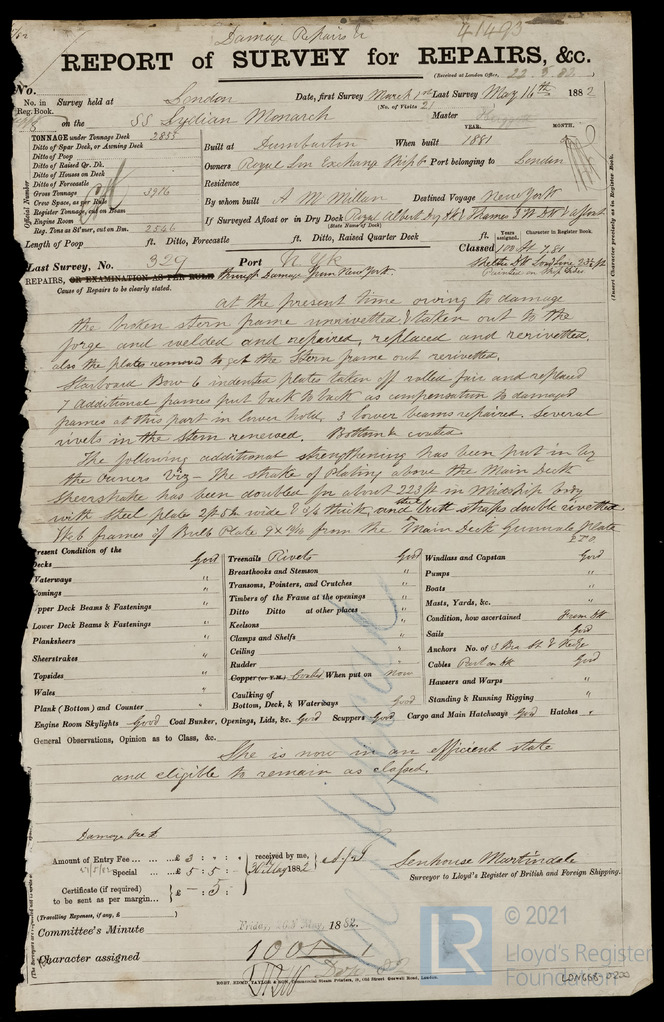 Damage Repairs &c
41493
REPORT of SURVEY for REPAIRS, &c.
(Received at London Office, 22.5.82)
No.
No. in Reg. Book.
Survey held at London Date, first Survey March 1st Last Survey May 16th 1882
(No. of Visits 21)
on the SS Lydian Monarch Master
TONNAGE under Tonnage Deck 2855
Ditto of Spar Deck, or Awning Deck
Ditto of Poop
Ditto of Raised Qr. Dk.
Ditto of Houses on Deck
Ditto of Forecastle
Gross Tonnage 3916
Crew Space, as per Rule
Register Tonnage, cut on Beam
Engine Room
Reg. Tons as St'mer, cut on Bm. 2546
Official Number
YEAR. MONTH.
Built at Dumbarton When built 1881
Owners Royal Exchange Ship Co Port belonging to London
Residence
By whom built A McMillan Destined Voyage New York
If Surveyed Afloat or in Dry Dock Royal Albert Dry Dk & Thames I W DK & afloat
(State Name of Dock)
Length of Poop ft. Ditto, Forecastle ft. Ditto, Raised Quarter Deck ft.
Years assigned. Character in Register Book.
Classed 100 A1. 7,81
(Insert Character precisely as in Register Book.
Last Survey, No. 329 Port N. Yk
REPAIRS, OR EXAMINATION AS PER RULE through Damage from New York.
Cause of Repairs to be clearly stated.
at the present time owing to damage
the broken stern frame unrivetted & taken out to the
forge and welded and repaired, replaced and rerivetted.
also the plates removed to get the Stern frame out rerivetted.
Starboard Bow 6 indented plates taken off rolled fair and replaced
7 additional frames put back to back as compensation to damaged
frames at this part in lower hold. 3 lower beams repaired. Several
rivets in the Stem renewed. Bottom coated
The following additional strengthening has been put in by
the owners Viz - The strake of Plating above the Main Deck
Sheerstrake has been doubled for about 223 ft in Midship body
with steel plate 2ft 5 1/2 wide & 3/4 thick, and steel butt straps double rivetted
6 frames of Bulb Plate from the Main Deck Gunwale plate
P.T.O.
Present Condition of the
Decks Good
Waterways "
Comings "
Upper Deck Beams & Fastenings "
Lower Deck Beams & Fastenings "
Planksheers "
Sheerstrakes "
Topsides "
Wales "
Plank (Bottom) and Counter "
Treenails Rivets Good
Breasthooks and Stemson "
Transoms, Pointers, and Crutches "
Timbers of the Frame at the openings "
Ditto Ditto at other places "
Keelsons "
Clamps and Shelfs "
Ceiling "
Rudder "
Copper (or Y.M.) Coated When put on now
Caulking of Bottom, Deck, & Waterways Good
Windlass and Capstan Good
Pumps "
Boats "
Masts, Yards, &c. "
Condition, how ascertained From DK
Sails Good
Anchors No. of 3 Bra St. & Kedge
Cables Part on DK Good
Hawsers and Warps "
Standing & Running Rigging "
Engine Room Skylights Good Coal Bunker, Openings, Lids, &c. Good Scuppers Good Cargo and Main Hatchways Good Hatches "
General Observations, Opinion as to Class, &c.
She is now in an efficient state
and eligible to remain as classed.
Damage Fee £
Amount of Entry Fee £ 3 : " : "
Special £ 5 : 5 :
Certificate (if required) to be sent as per margin £ - 5 :
received by me, 1882
(Travelling Expenses, if any, £ )
Senhouse Martindale
Surveyor to Lloyd's Register of British and Foreign Shipping.
Committee's Minute Friday, 26th May, 1882.
Character assigned 100 A 1
ROBT. EDMD. TAYLOR & SON, Commercial Steam Printers, 19, Old Street Goswell Road, London.
LR
© 2021
Lloyd's Register
Foundation
LON668-0200